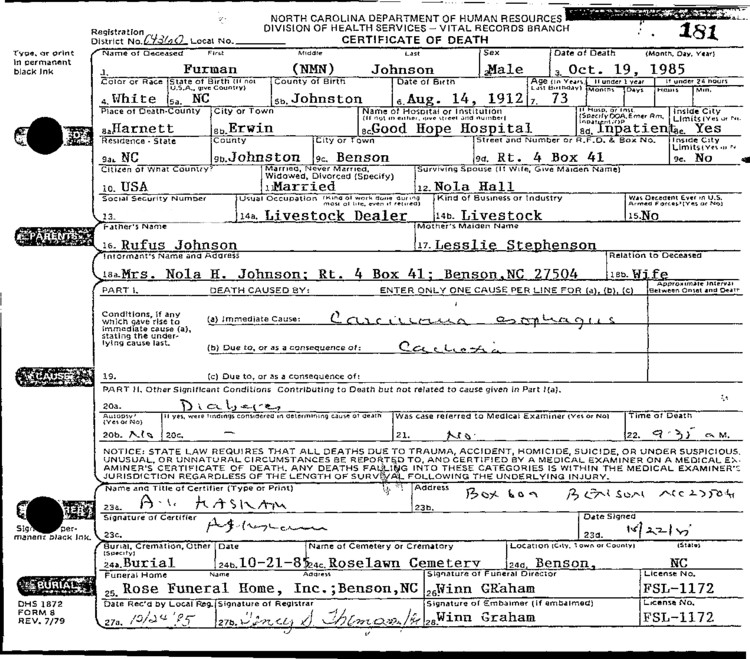 NORTH CAROLINA DEPARTMENT OF HUMAN RESOURCES
DIVISION OF HEALTH SERVICES – VITAL RECORDS BRANCH
CERTIFICATE OF DEATH
181
Registration District No. Local No.
Type, or print in permanent black ink
Name of Deceased First Middle Last Sex Date of Death (Month, Day, Year)
1. Furman (NMN) Johnson 2. Male 3. Oct. 19, 1985
Color or Race State of Birth (If not U.S.A., give Country) County of Birth Date of Birth Age (in Years Last Birthday) If under 1 year If under 24 hours
Months Days Hours Min.
4. White 5a. NC 5b. Johnston 6. Aug. 14, 1912 7. 73
Place of Death-County City or Town Name of Hospital or Institution (If not in either, give street and number) If Hosp. or Inst. (Specify DOA, Emer Rm, Inpatient) Inside City Limits (Yes or No)
8a. Harnett 8b. Erwin 8c. Good Hope Hospital 8d. Inpatient 8e. Yes
Residence - State County City or Town Street and Number or R.F.D. & Box No. Inside City Limits (Yes or No)
9a. NC 9b. Johnston 9c. Benson 9d. Rt. 4 Box 41 9e. No
Citizen of What Country? Married, Never Married, Widowed, Divorced (Specify) Surviving Spouse (If Wife, Give Maiden Name)
10. USA 11. Married 12. Nola Hall
Social Security Number Usual Occupation (Kind of work done during most of life, even if retired) Kind of Business or Industry Was Decedent Ever in U.S. Armed Forces? (Yes or No)
13. 14a. Livestock Dealer 14b. Livestock 15. No
PARENTS
Father's Name Mother's Maiden Name
16. Rufus Johnson 17. Lesslie Stephenson
Informant's Name and Address Relation to Deceased
18a. Mrs. Nola H. Johnson; Rt. 4 Box 41; Benson, NC 27504 18b. Wife
PART I. DEATH CAUSED BY: ENTER ONLY ONE CAUSE PER LINE FOR (a), (b), (c) Approximate Interval Between Onset and Death
Conditions, if any which gave rise to immediate cause (a), stating the underlying cause last.
(a) Immediate Cause: Carcinoma esophagus
(b) Due to, or as a consequence of: Cachexia
CAUSE
19. (c) Due to, or as a consequence of:
PART II. Other Significant Conditions Contributing to Death but not related to cause given in Part I(a).
20a. Diabetes
Autopsy? (Yes or No) If yes, were findings considered in determining cause of death Was case referred to Medical Examiner (Yes or No) Time of Death
20b. No 20c. – 21. No. 22. 9:35 a M.
NOTICE: STATE LAW REQUIRES THAT ALL DEATHS DUE TO TRAUMA, ACCIDENT, HOMICIDE, SUICIDE, OR UNDER SUSPICIOUS,
UNUSUAL, OR UNNATURAL CIRCUMSTANCES BE REPORTED TO, AND CERTIFIED BY A MEDICAL EXAMINER ON A MEDICAL EX-
AMINER'S CERTIFICATE OF DEATH. ANY DEATHS FALLING INTO THESE CATEGORIES IS WITHIN THE MEDICAL EXAMINER'S
JURISDICTION REGARDLESS OF THE LENGTH OF SURVIVAL FOLLOWING THE UNDERLYING INJURY.
Name and Title of Certifier (Type or Print) Address
23a. 23b. Box 609 BENSON NC 27504
Signature of Certifier Date Signed
23c. 23d. 10/22/85
Burial, Cremation, Other (Specify) Date Name of Cemetery or Crematory Location (City, Town or County) (State)
24a. Burial 24b. 10-21-85 24c. Roselawn Cemetery 24d. Benson, NC
BURIAL
Funeral Home Name Address Signature of Funeral Director License No.
25. Rose Funeral Home, Inc.; Benson, NC 26. Winn GRaham FSL-1172
DHS 1872
FORM 8
REV. 7/79
Date Rec'd by Local Reg. Signature of Registrar Signature of Embalmer (if embalmed) License No.
27a. 10/24/85 27b. 28. Winn Graham FSL-1172